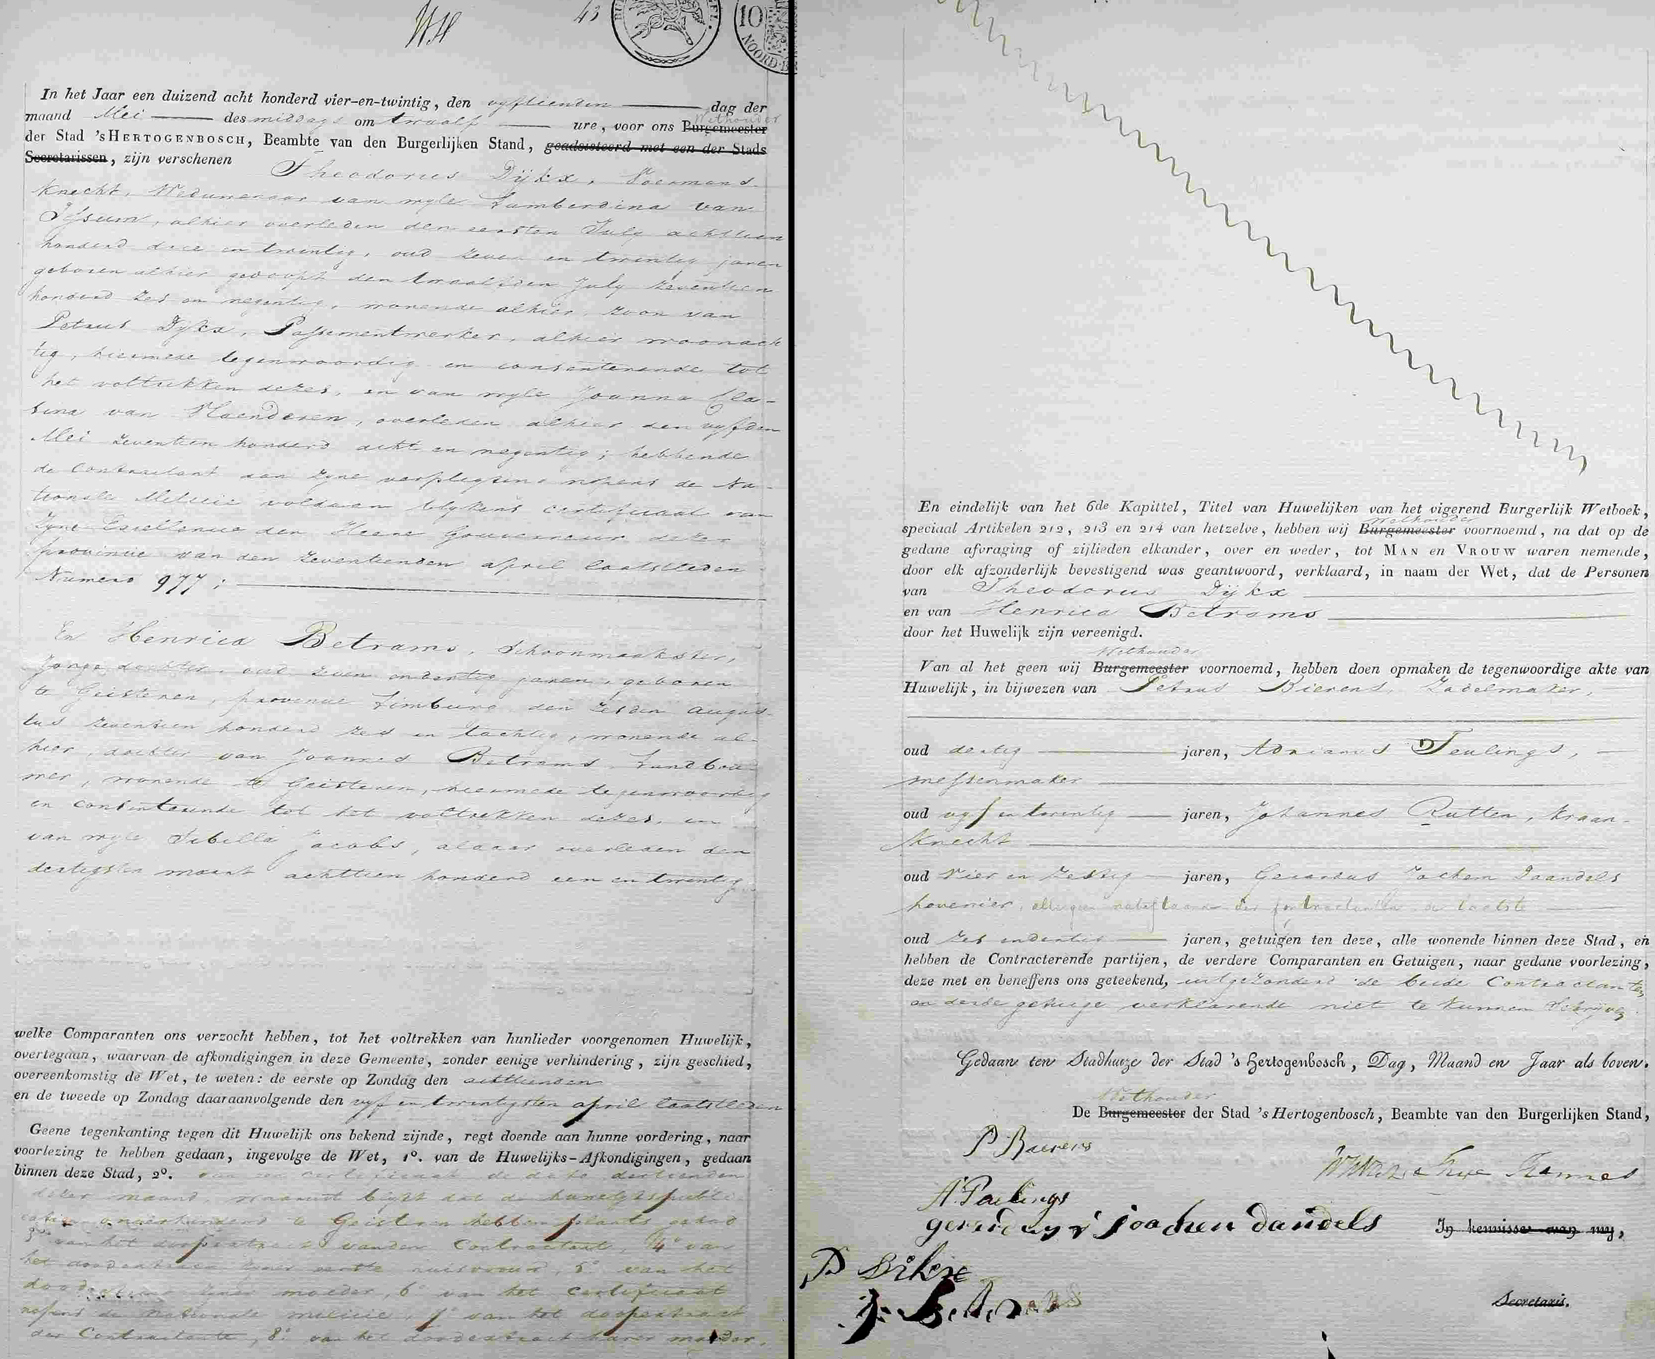 43
10
In het Jaar een duizend acht honderd vier-en-twintig, den vyftienden dag der
maand Mei des middags om twaalf ure, voor ons Burgemeester Wethouder
der Stad 's HERTOGENBOSCH, Beambte van den Burgerlijken Stand, geadsisteerd met een der Stads
Secretarissen, zijn verschenen Theodorus Dijkx, Voermans
knecht, Weduwenaar van wyle Lamberdina van
Ossum, alhier overleden den eersten July achttien
honderd drie en twintig, oud zeven en twintig jaren
geboren alhier gedoopt den twaalfden July zeventien
honderd zes en negentig, wonende alhier, zoon van
Petrus Dijkx, Passementwerker, alhier woonach
tig, hiermede tegenwoordig en consenterende tot
het voltrekken dezes, en van wyle Joanna Cla-
sina van Vlaenderen, overleden alhier den vyfden
Mei zeventien honderd acht en negentig; hebbende
de Contractant aan zyne verpligting nopens de Na-
tionale Militie voldaan blykens certificaat van
Zyne Excellencie den Heere Gouverneur dezer
provincie van den zeventienden april laatstleden
Numero 977;
En Henrica Betrams, Schoonmaakster,
Jonge dochter, oud zeven en dertig jaren, geboren
te Geisteren, provincie Limburg den zesden Augus-
tus zeventien honderd zes en tachtig, wonende al-
hier, dochter van Joannes Betrams Landbou-
wer, wonende te Geisteren, hiermede tegenwoordig
en consenteerende tot het voltrekken dezes, en
van wyle Sibilla Jacobs, aldaar overleden den
dertigsten maart achttien honderd een en twintig
welke Comparanten ons verzocht hebben, tot het voltrekken van hunlieder voorgenomen Huwelijk,
overtegaan, waarvan de afkondigingen in deze Gemeente, zonder eenige verhindering, zijn geschied,
overeenkomstig de Wet, te weten: de eerste op Zondag den achttienden
en de tweede op Zondag daaraanvolgende den vyf en twintigsten april laatstleden
Geene tegenkanting tegen dit Huwelijk ons bekend zijnde, regt doende aan hunne vordering, naar
voorlezing te hebben gedaan, ingevolge de Wet, 1°. van de Huwelijks-Afkondigingen, gedaan
binnen deze Stad, 2°. van een certificaat de dato dertienden
dezer maand, waaruit blykt dat de huwelykspubli-
catien onverhinderd te Geisteren hebben plaats gehad
3° van het doopextract vanden Contractant 4° van
het doodextract zyner eerste huisvrouw, 5° van het
doodextract zyner moeder, 6° van het certificaat
nopens de Nationale militie, 7° van het doopextract
der Contractante, 8° van het doodextract harer moeder.
En eindelijk van het 6de Kapittel, Titel van Huwelijken van het vigerend Burgerlijk Wetboek,
speciaal Artikelen 212, 213 en 214 van hetzelve, hebben wij Burgemeester Wethouder voornoemd, na dat op de
gedane afvraging of zijlieden elkander, over en weder, tot MAN en VROUW waren nemende,
door elk afzonderlijk bevestigend was geantwoord, verklaard, in naam der Wet, dat de Personen
van Theodorus Dijkx
en van Henrica Betrams
door het Huwelijk zijn vereenigd.
Van al het geen wij Burgemeester Wethouder voornoemd, hebben doen opmaken de tegenwoordige akte van
Huwelijk, in bijwezen van Petrus Bierens, Zadelmaker,
oud dertig jaren, Adrianus Teulings,
messenmaker
oud vyf en twintig jaren, Johannes Rutten, kraan-
knecht
oud vier en zestig jaren, Gerardus Jochem Daandels
hovenier,
oud zes en dertig jaren, getuigen ten deze, alle wonende binnen deze Stad, en
hebben de Contracterende partijen, de verdere Comparanten en Getuigen, naar gedane voorlezing,
deze met en beneffens ons geteekend, uitgezonderd de beide Contractanten
en derde getuige verklarende niet te kunnen Schryven.
Gedaan ten Stadhuize der Stad 's Hertogenbosch, Dag, Maand en Jaar als boven.
Wethouder
De Burgemeester der Stad 's Hertogenbosch, Beambte van den Burgerlijken Stand,
In kennisse van my,
Secretaris.